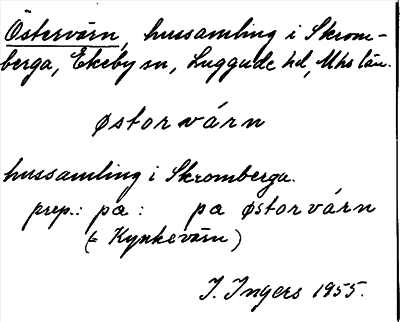 Östervärn, hussamling i Skrom-
berga, Ekeby sn, Luggude hd, Mhs län.
østorvárn
hussamling i Skromberga.
prep.: pa : pa østorvárn
(= Kyrkevärn)
I. Ingers 1955.